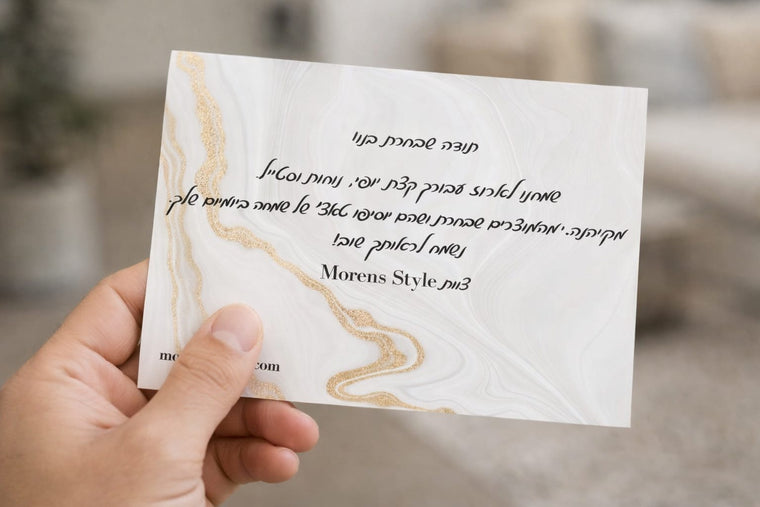 תודה שבחרת בנו!
שמחנו לארוז עבורך קצת יופי, נוחות וסטייל.
מהמוצרים שבחרת ושהם יוסיפו טאצ' של שמחה ביומיום שלך.
נשמח לראותך שוב!
צוות Morens Style
.com